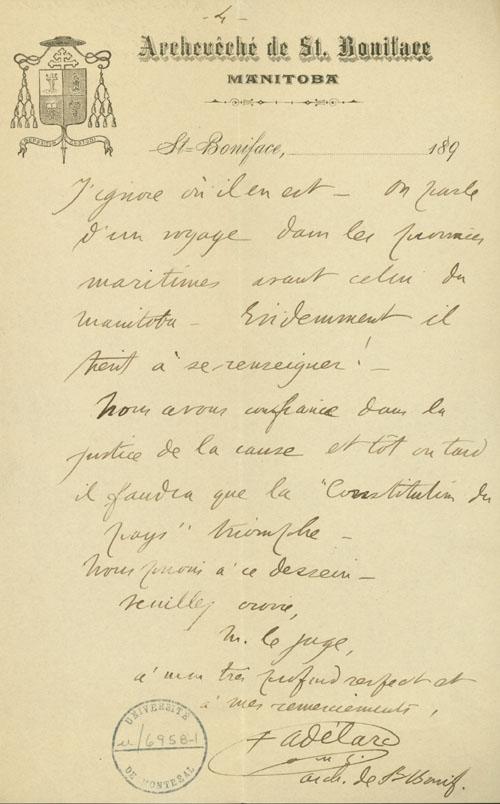 - 4 -
Archevêché de St. Boniface
MANITOBA
St-Boniface, 189
J'ignore où il en est - On parle
d'un voyage dans les provinces
maritimes avant celui du
Manitoba - Evidemment il
tient à se renseigner! -
Nous avons confiance dans la
justice de la cause et tôt ou tard
il faudra que la "Constitution du
pays" triomphe -
Nous prions à ce dessein -
Veuillez croire,
M. le juge,
à mon très profond respect et
à mes remerciements,
+ Adélard
arch. de St Bonif.
UNIVERSITÉ
u/6958-1
DE MONTRÉAL